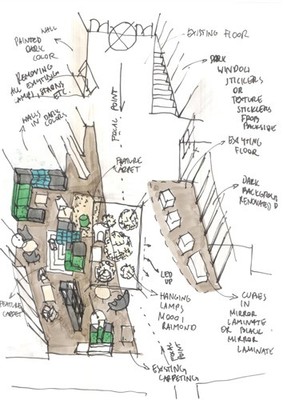 WALL
PAINTED
DARK
COLOR
REMOVING
ALL EXISTING
ETC.
WALLS IN DARK
COLORS
FOCAL POINT
EXISTING FLOOR
DARK
WINDOW
STICKERS
OR
TEXTURE
STICKERS
FROM
BACKSIDE
EXISTING
FLOOR
FEATURE
CARPET
DARK
BACKGROUND
LED
UP
HANGING
LAMPS
MOOOI
RAIMOND
CUBES IN
MIRROR
LAMINATE
OR BLACK
MIRROR
LAMINATE
FEATURE
CARPET
EXISTING
CARPETING